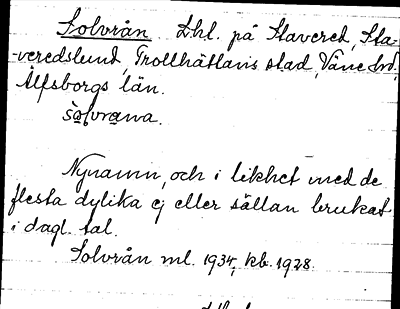 Solvrån Lhl. på Stavered, Sta-
-veredslund, Trollhättans stad, Väne hd,
Älfsborgs län.
sòlvrana.
Nynamn, och i likhet med de
flesta dylika ej eller sällan brukat
i dagl. tal.
Solvrån ml. 1934, kb. 1928.